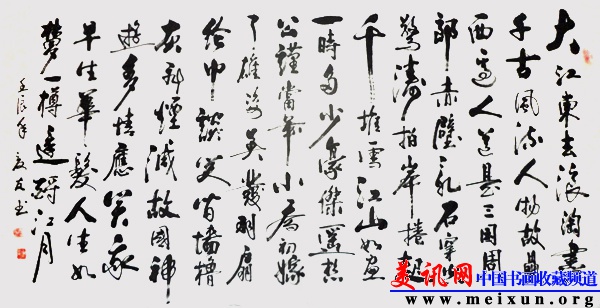 大江東去浪淘盡
千古風流人物故壘
西邊人道是三國周
郎赤壁乱石穿空
驚濤拍岸捲起
千堆雪江山如畫
一時多少豪傑遥想
公瑾當年小喬初嫁
了雄姿英發羽扇
綸巾談笑間檣櫓
灰飛煙滅故國神
遊多情應笑我
早生華髮人生如
夢一樽還酹江月
壬辰年 友书
美讯网
中国书画收藏频道
www.meixun.org